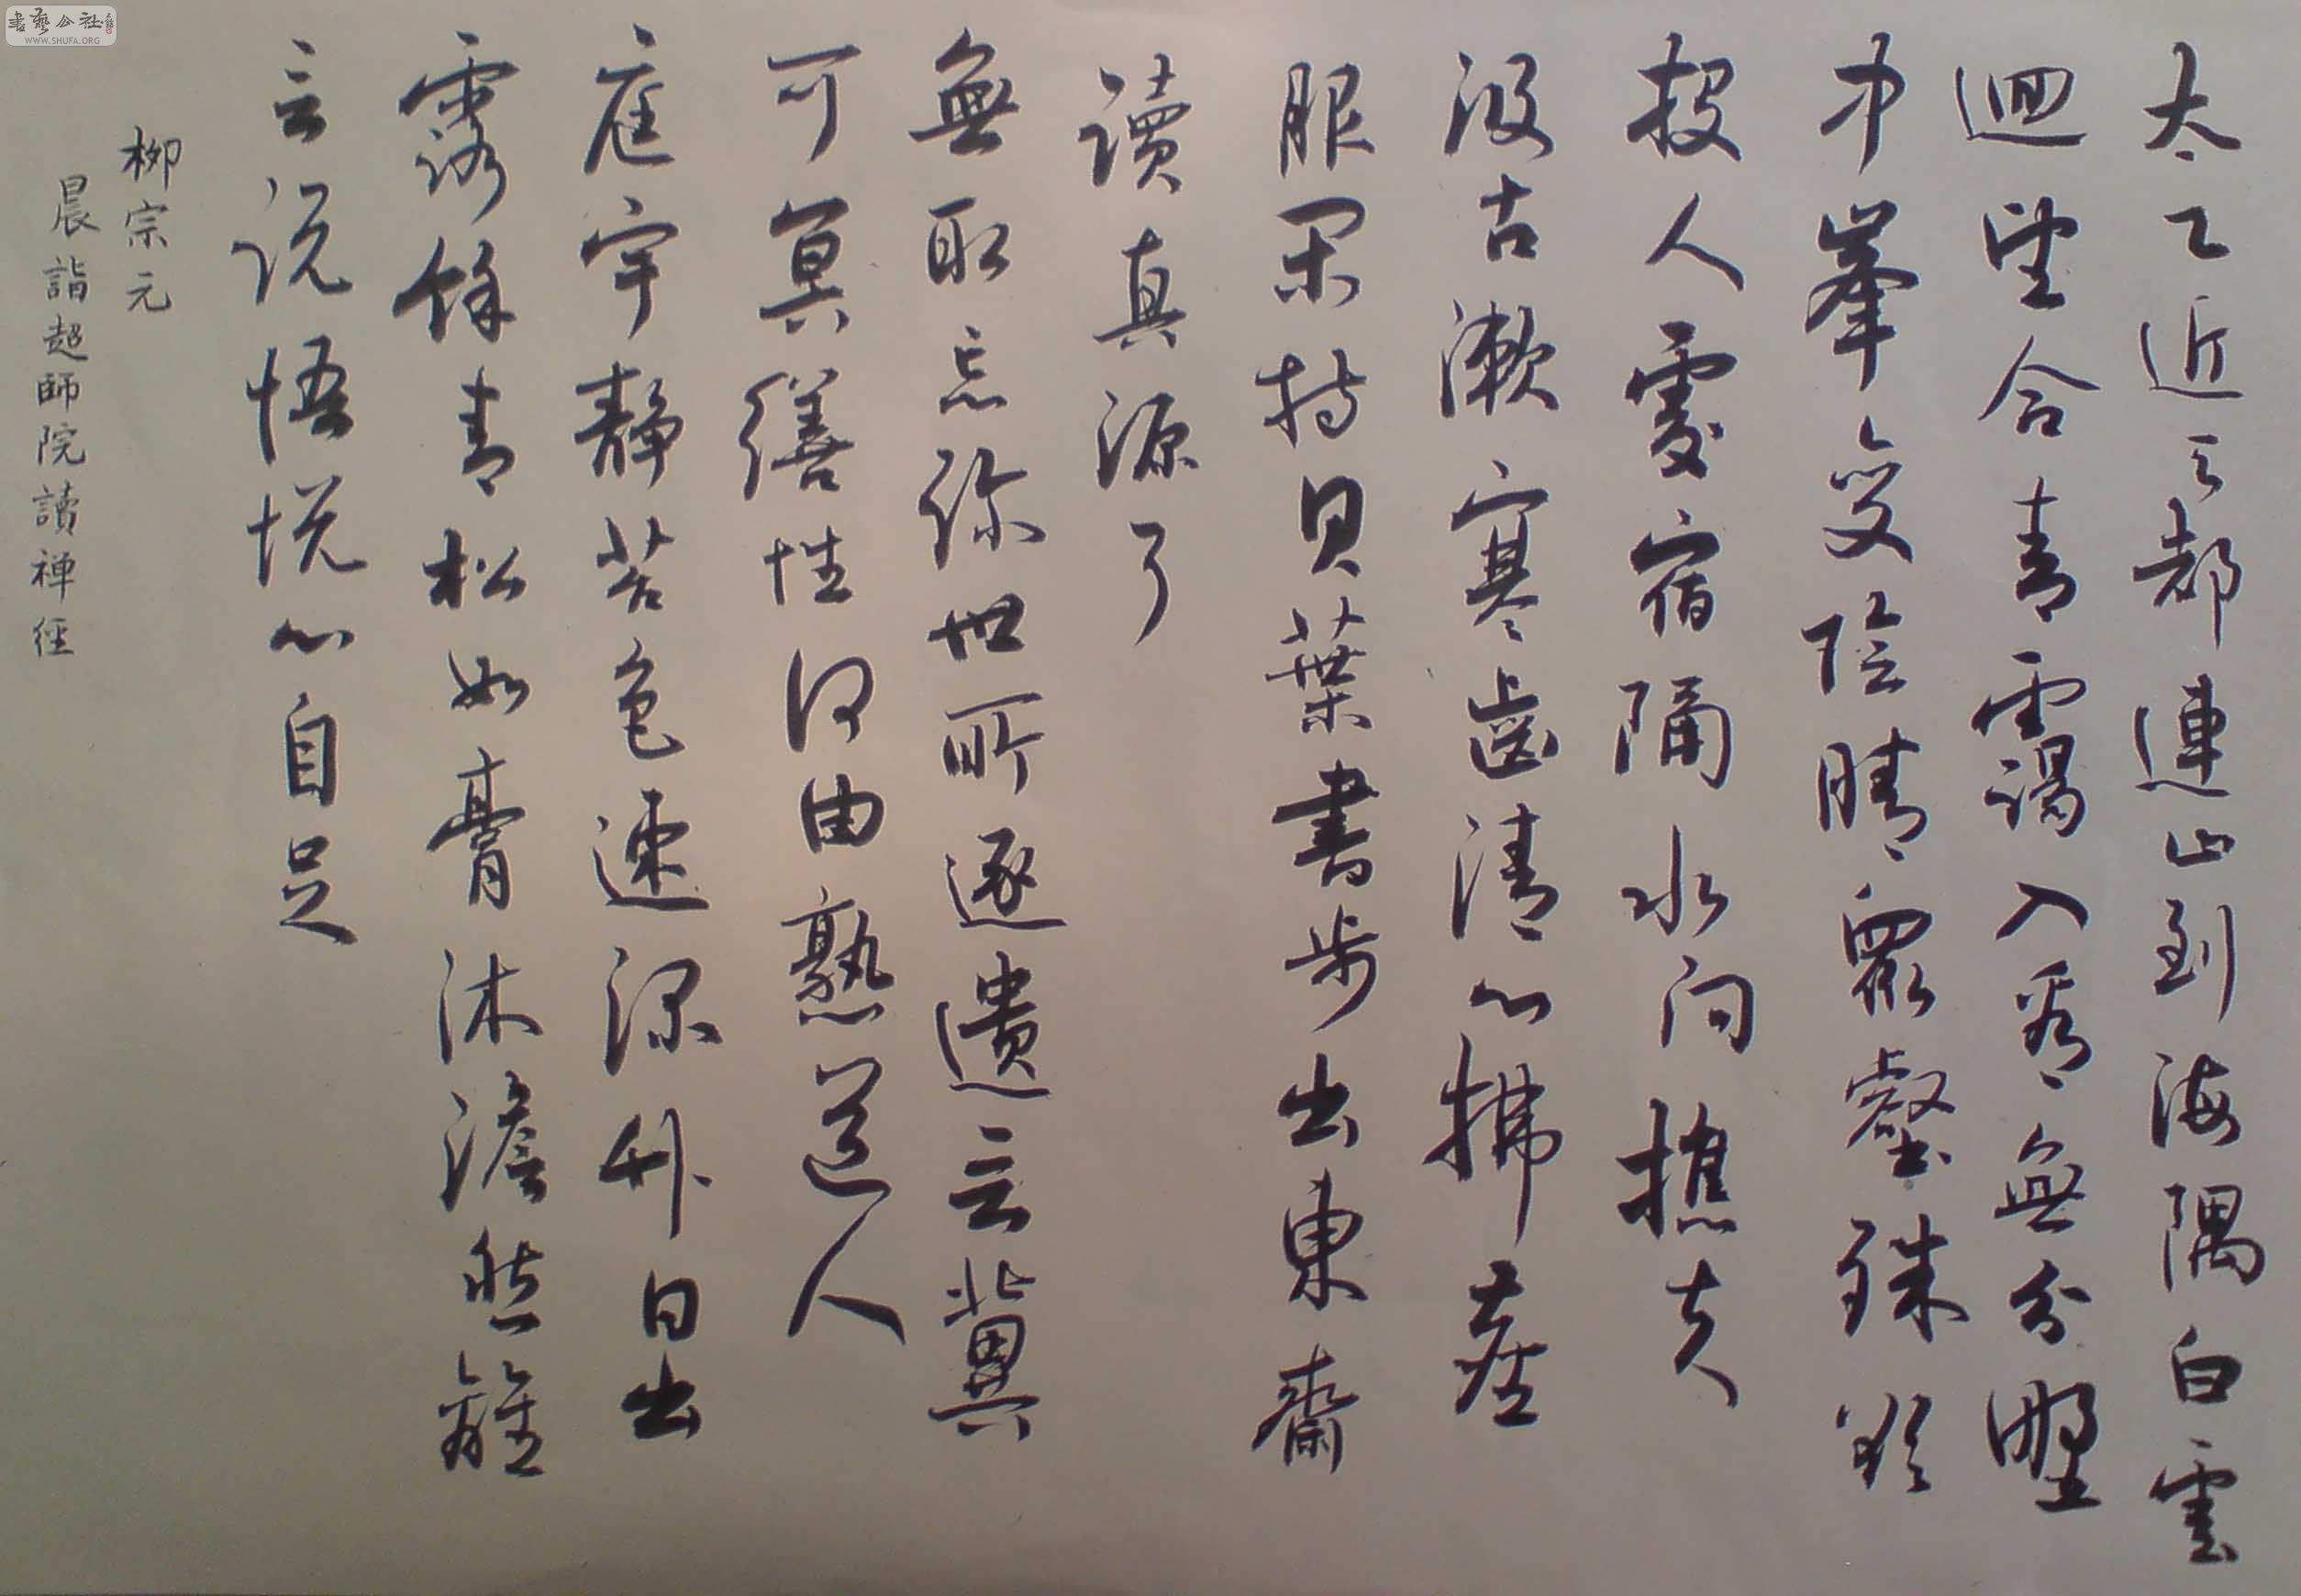 太乙近天都連山到海隅白雲
迴望合青靄入看無分野
中峯變陰晴衆壑殊欲
投人處宿隔水问樵夫
汲古漱寒齒清心拂塵
服闲持貝葉書步出東齋
讀真源了
無取忘跡世所逐遺言冀
可冥繕性何由熟道人
庭宇靜苔色連深竹日出
露餘青松如膏沐澹然離
言说悟悦心自足
柳宗元
晨詣超師院讀禅经
書藝公社
WWW.SHUFA.ORG